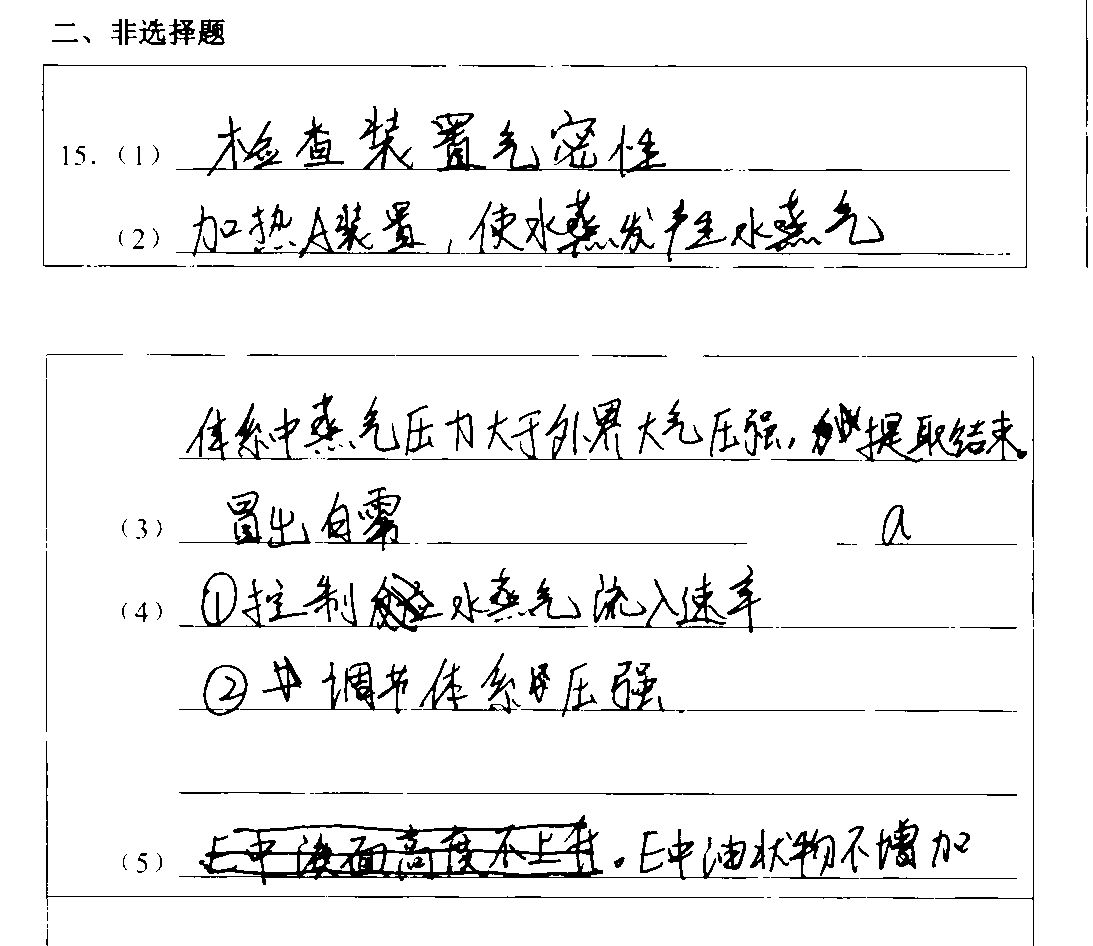 二、非选择题
15.（1） 检查装置气密性
（2） 加热A装置，使水蒸发产生水蒸气
体系中蒸气压力大于外界大气压强，提取结束。
（3） 冒出白雾 a
（4） ①控制水蒸气流入速率
②调节体系中压强
（5） E中液面高度不上升。E中油状物不增加